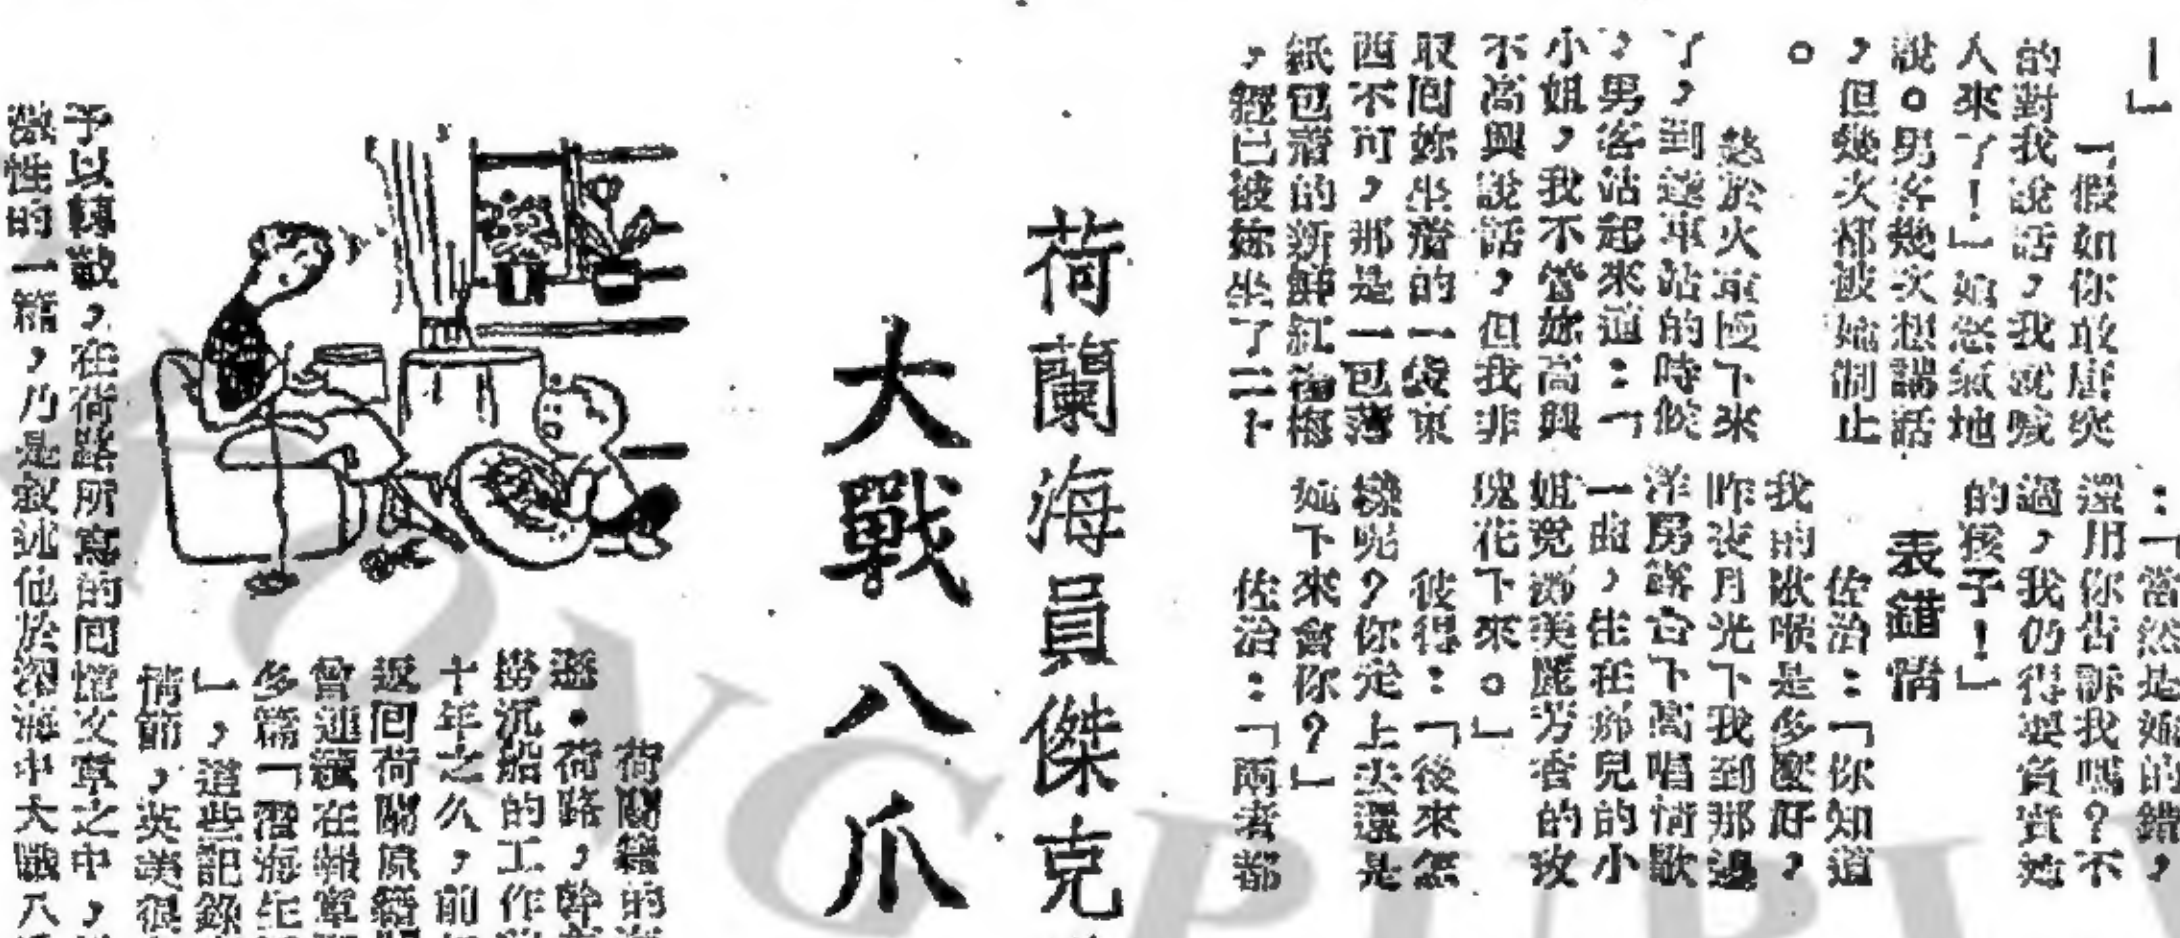 一」
「假如你敢唐突
的對我說話，我就喊
人來了！」她怒氣地
說。男客幾次想講話
，但幾次都被她制止
。
終於火車慢下來
了，到達車站的時候
，男客站起來道：「
小姐，我不管妳高興
不高興說話，但我非
取回妳坐着的一袋東
西不可，那是一包薄
紙包着的新鮮紅
，經已被妳坐了二下
：「當然是妳的錯，
還用你告訴我嗎？不
過，我仍得要負責她
的孩子！」
表錯情
佐治：「你知道
我的歌喉是多麼好，
昨夜月光下我到那邊
洋房露台下高唱情歌
一曲，住在那兒的小
姐竟擲美麗芳香的玫
瑰花下來。」
彼得：「後來怎
樣呢？你走上去還是
她下來會你？」
佐治：「兩者都
荷蘭海員傑克
大戰八爪
荷蘭籍的
遜·荷路，幹
撈沉船的工作
十年之久，前
返回荷蘭原籍
曾連續在報章
多篇「潛海生
」，這些記錄
情節，英美很
予以轉載，在荷路所寫的回憶文章之中，
激性的一篇，乃是敘述他於深海中大戰八